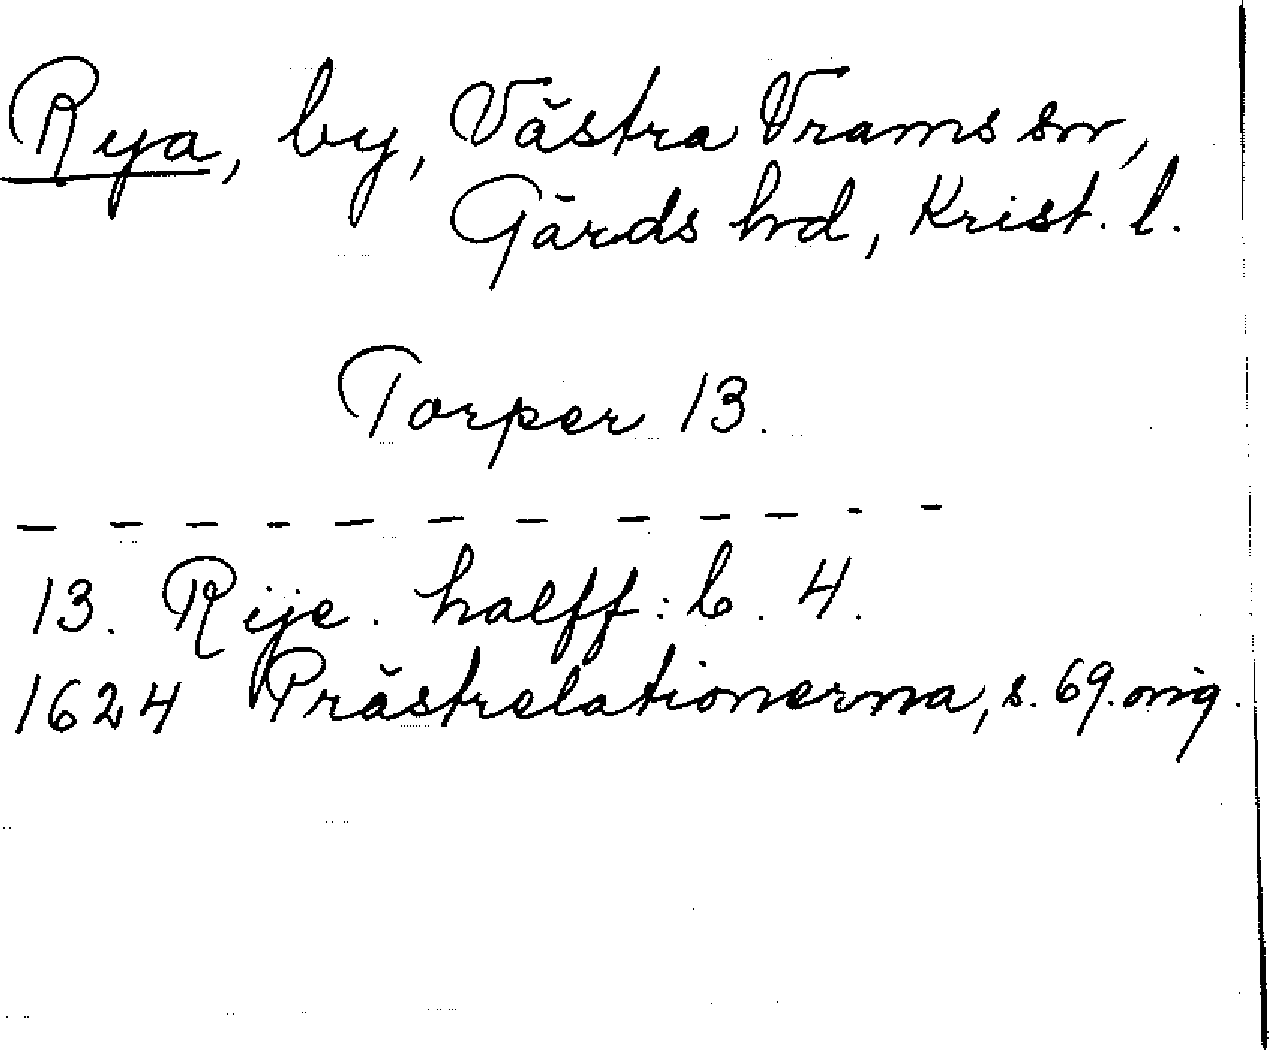 Rya, by, Västra Vrams sn,
Gärds hd, Krist. l.
Torper 13.
— — — — — — — — — — - -
13. Rije. halff: b. 4.
1624 Prästrelationerna, s. 69. orig.